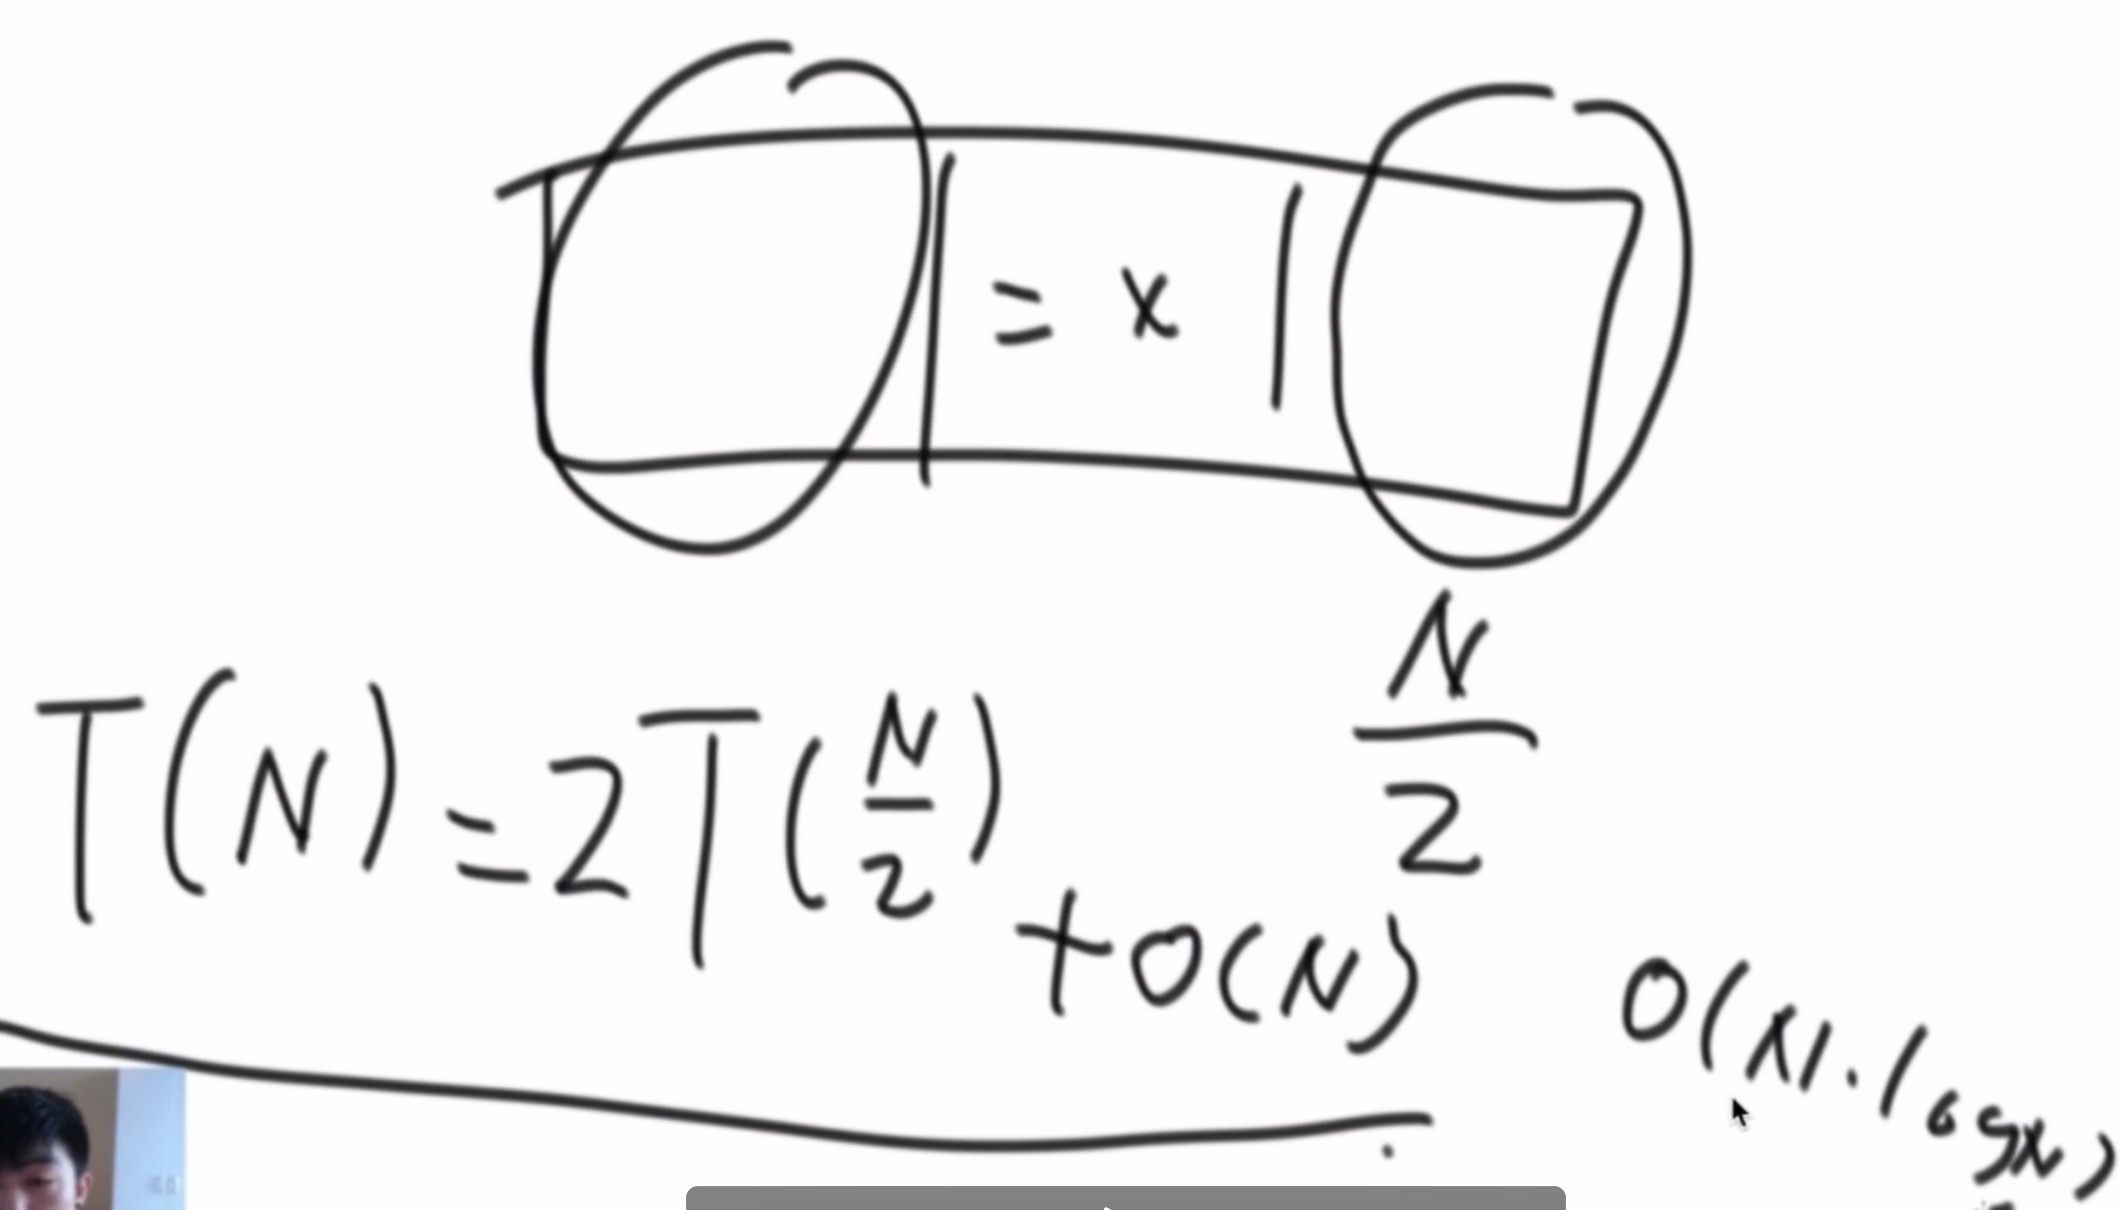 = x
N/2
T(N) = 2T(N/2) + O(N)
O(N·logN)